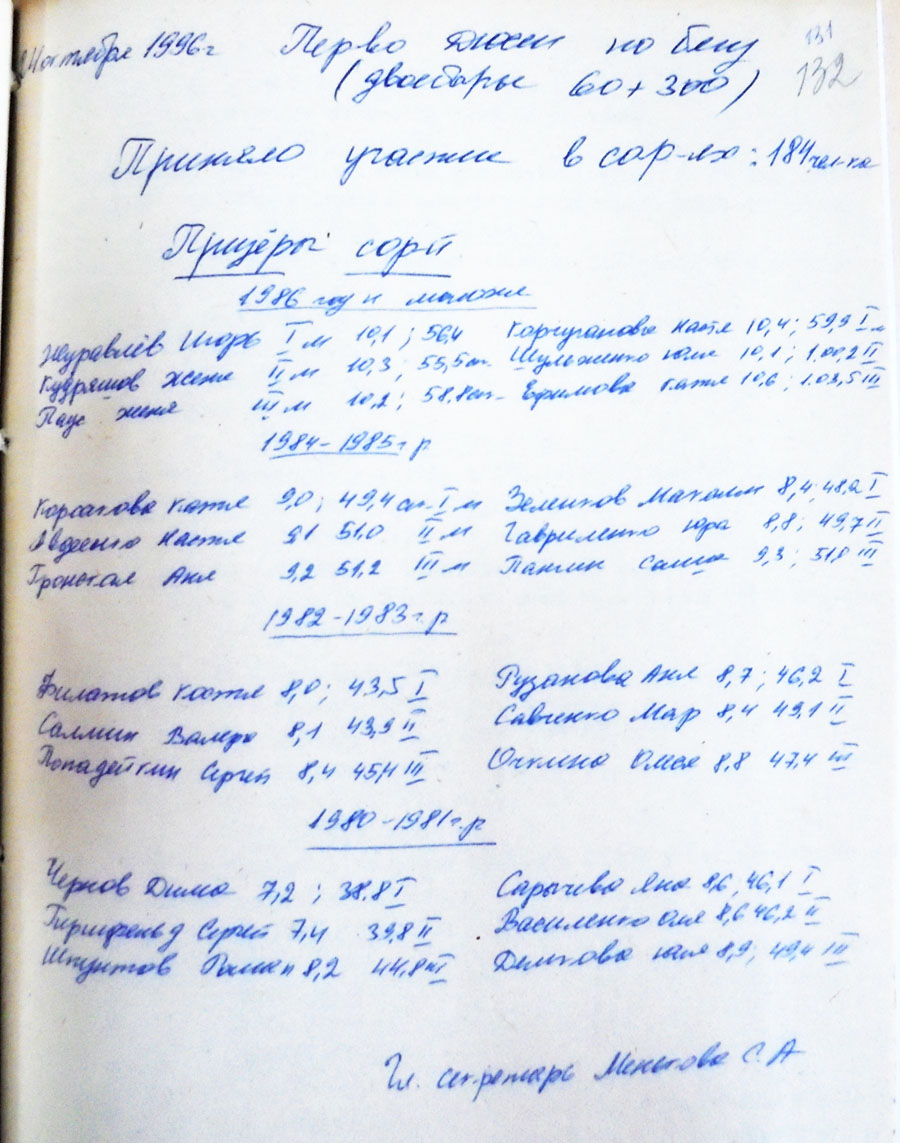 24 октября 1996 г Перво ДЮСШ по бегу 131
(двоеборье 60+300) 132
Приняло участие в сор-ях: 184 чел-ка
Призёры сорй
1986 год и моложе
Журавлёв Игорь I м 10,1; 56,4 Настя 10,4; 59,9 I м
Кудряшов Женя II м 10,3; 55,5 сп. Шулеженко Юля 10,1; 1.00,2 II
Паус Женя III м 10,2; 58,8 сп- Ефимова Катя 10,6; 1.03,5 III
1984-1985 г р
Корсакова Катя 9,0; 49,4 сп. I м Зеленков Максим 8,4; 48,2 I
Авдеенко Настя 9,1 51,0 II м Гавриленко Юра 8,8; 49,7 II
Аня 9,2 51,2 III м Пангин Саша 9,3; 51,8 III
1982-1983 г.р
Филатов Костя 8,0; 43,5 I Рузанова Аня 8,7; 46,2 I
Саллин Валера 8,1 43,9 II Савченко Мар 8,4 49,1 II
Попадейкин Сергей 8,4 45,4 III Очкина Олеся 8,8 47,4 III
1980-1981 г.р
Чернов Дима 7,2; 38,8 I Сарычева Яна 8,6, 46,1 I
Гиршфельд Сергей 7,4 39,8 II Василенко Оля 8,6 46,2 II
Роман 8,2 44,8 III Демкова Юля 8,9; 49,4 III
Гл. секретарь С. А